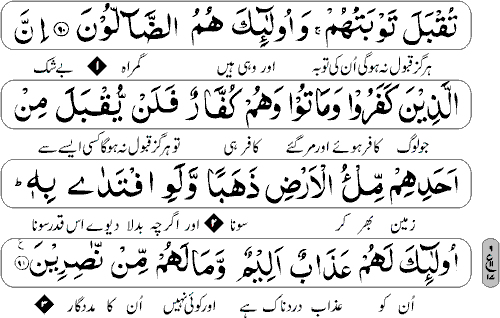 تُقْبَلَ تَوْبَتُهُمْ ۚ وَاُولٰٓئِكَ هُمُ الضَّآلُّوْنَ ﴿۹۰﴾ اِنَّ
ہرگز قبول نہ ہوگی اُن کی توبہ اور وہی ہیں گمراہ ۱ بےشک
الَّذِيْنَ كَفَرُوْا وَمَاتُوْا وَهُمْ كُفَّارٌ فَلَنْ يُّقْبَلَ مِنْ
جو لوگ کافر ہوئے اور مر گئے کافر ہی تو ہرگز قبول نہ ہوگا کسی ایسے سے
اَحَدِهِمْ مِّلْءُ الْاَرْضِ ذَهَبًا وَّلَوِ افْتَدٰى بِهٖ ؕ
زمین بھر کر سونا ۲ اور اگرچہ بدلا دیوے اس قدر سونا
اُولٰٓئِكَ لَهُمْ عَذَابٌ اَلِيْمٌ وَّمَا لَهُمْ مِّنْ نّٰصِرِيْنَ ﴿۹۱﴾
اُن کو عذاب دردناک ہے اور کوئی نہیں اُن کا مددگار ۳